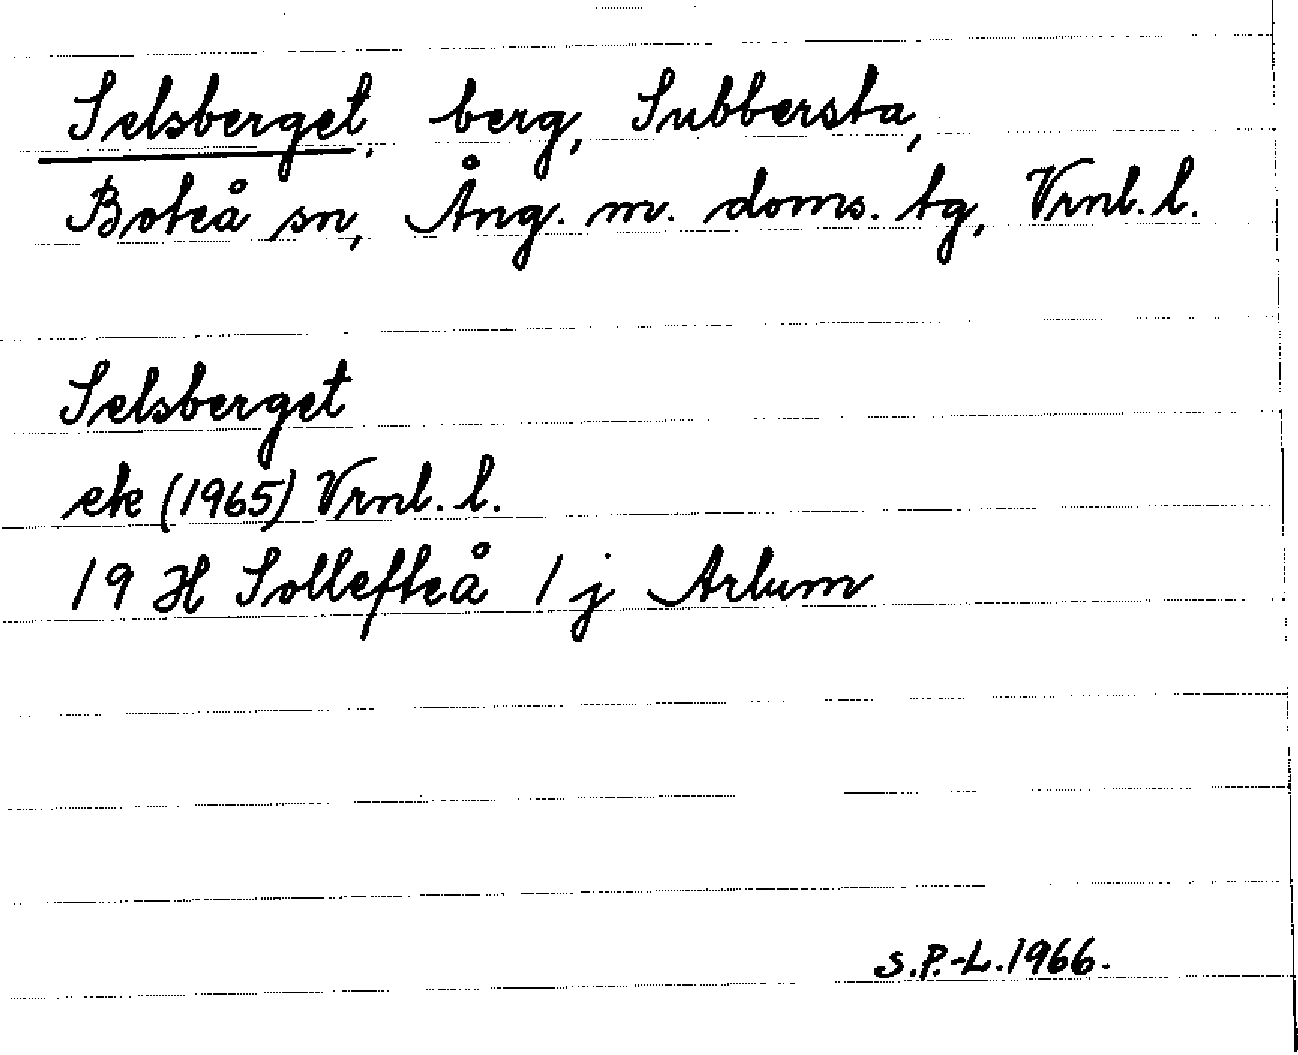 Selsberget, berg, Subbersta,
Boteå sn, Ång. m. doms. tg, Vrnl. l.
Selsberget
ek (1965) Vrnl. l.
19 H Sollefteå 1 j Arlum
S.P.-L. 1966.